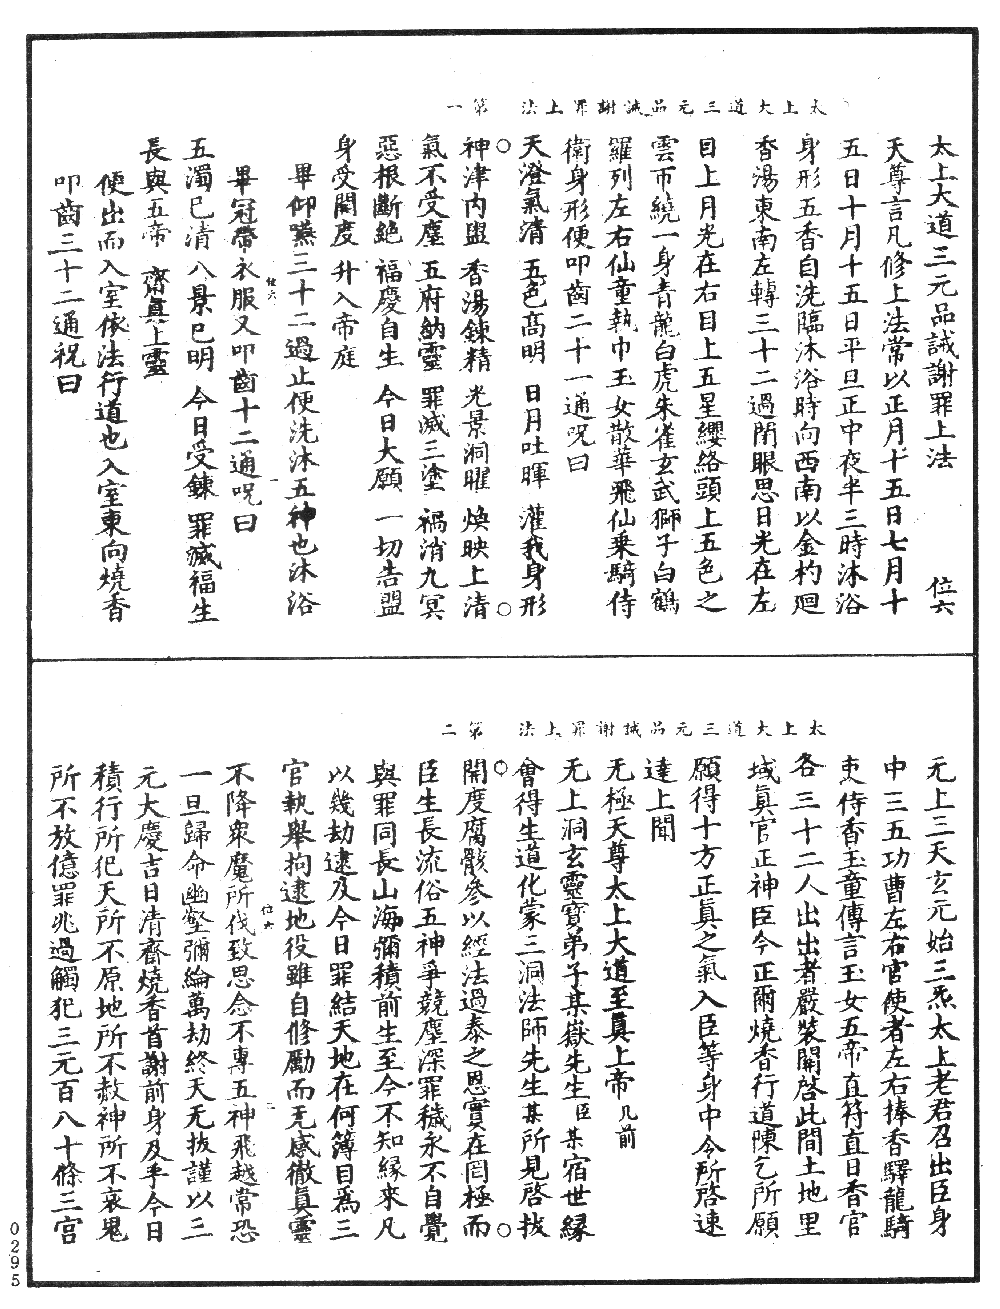 太上大道三元品誡謝罪上法　第一
太上大道三元品誡謝罪上法　位六
天尊言凡修上法常以正月十五日七月十
五日十月十五日平旦正中夜半三時沐浴
身形五香自洗臨沐浴時向西南以金杓迴
香湯東南左轉三十二過閉眼思日光在左
目上月光在右目上五星纓絡頭上五色之
雲帀繞一身青龍白虎朱雀玄武獅子白鶴
羅列左右仙童執巾玉女散華飛仙乗騎侍
衛身形便叩齒二十一通呪曰
天澄氣清　五色髙明　日月吐暉　灌我身形
神津内盥　香湯鍊精　光景洞曜　煥映上清
氣不受塵　五府納靈　罪滅三塗　禍消九冥
惡根斷絶　福慶自生　今日大願　一切告盟
身受開度　升入帝庭
畢仰嚥三十二過止便洗沐五神也沐浴
位六　一
畢冠帶衣服又叩齒十二通呪曰
五濁已清　八景已明　今日受鍊　罪滅福生
長與五帝　齋真上靈
便出而入室依法行道也入室東向燒香
叩齒三十二通祝曰
太上大道三元品誡謝罪上法　第二
元上三天玄元始三炁太上老君召出臣身
中三五功曹左右官使者左右捧香驛龍騎
吏侍香玉童傳言玉女五帝直符直日香官
各三十二人出出者嚴裝關啓此間土地里
域真官正神臣今正爾燒香行道陳乞所願
願得十方正真之氣入臣等身中令所啓速
達上聞
无極天尊太上大道至真上帝几前
无上洞玄靈寶弟子某嶽先生臣某宿世縁
會得生道化蒙三洞法師先生某所見啓拔
開度腐骸參以經法過泰之恩實在罔極而
臣生長流俗五神爭競塵深罪穢永不自覺
與罪同長山海彌積前生至今不知縁來凡
以幾劫逮及今日罪結天地在何簿目爲三
官執舉拘逮地役雖自修勵而无感徹真靈
位六　二
不降衆魔所伐致思念不專五神飛越常恐
一旦歸命幽壑彌綸萬劫終天无拔謹以三
元大慶吉日清齋燒香首謝前身及乎今日
積行所犯天所不原地所不赦神所不哀鬼
所不放億罪兆過觸犯三元百八十條三宮
0295